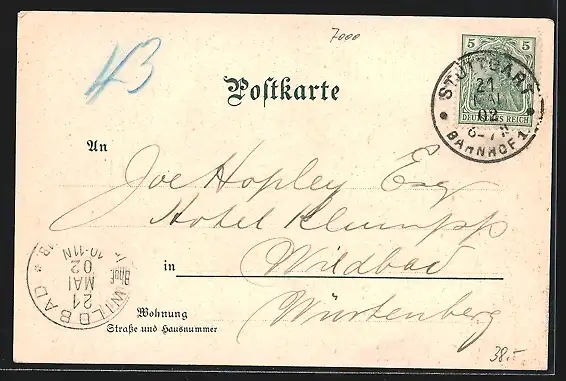 7000
43
5 5
DEUTSCHES REICH
STUTTGART
21
MAI
02
6-7N
BAHNHOF 1.
Postkarte
An
Joe Hopley Esq
Hotel Klumpp
in Wildbad
Würtenberg
WILDBAD
21
MAI
02
10-11N
Bhof.
Wohnung
Straße und Hausnummer
38.-